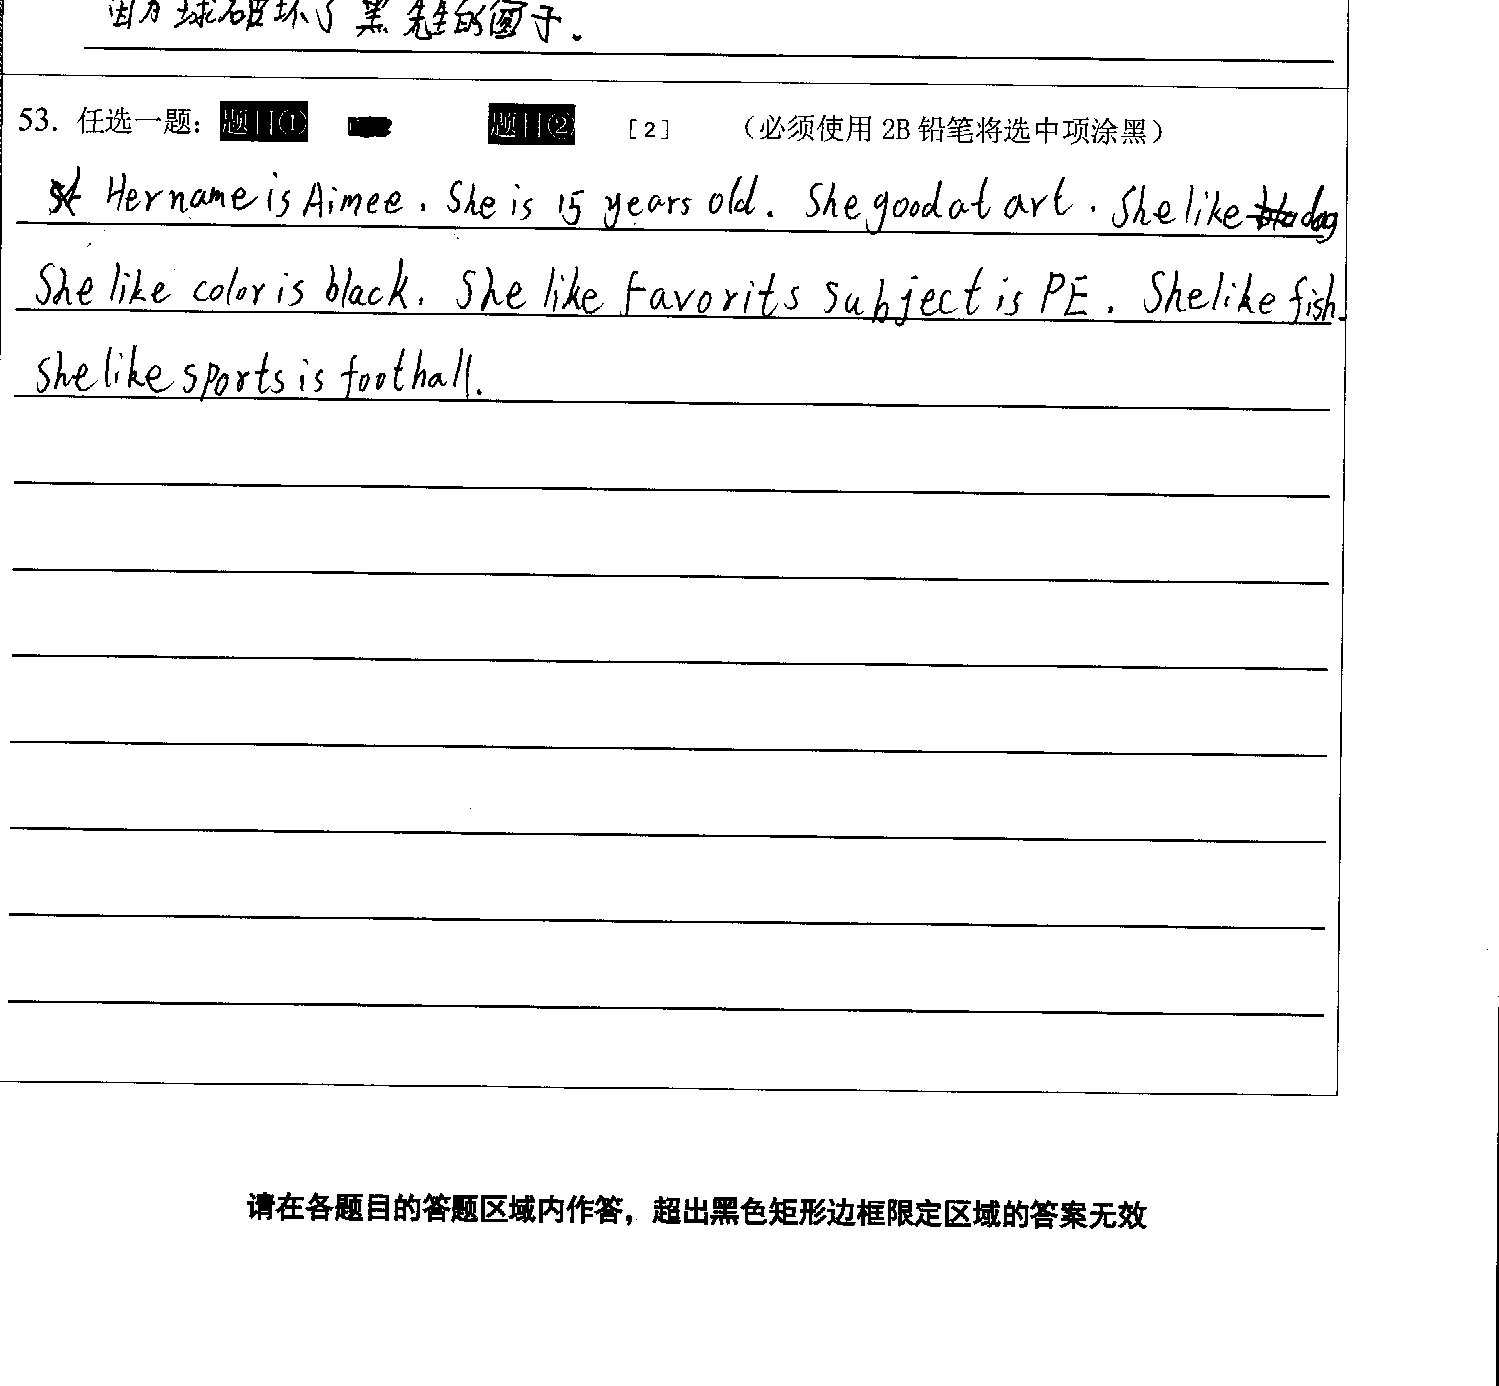 因为球破坏了黑先生的窗子.
53. 任选一题: 题目① 题目② [2] (必须使用 2B 铅笔将选中项涂黑)
Her name is Aimee. She is 15 years old. She good at art. She like dog
She like color is black. She like favorits subject is PE. She like fish.
She like sports is foothall.
请在各题目的答题区域内作答，超出黑色矩形边框限定区域的答案无效